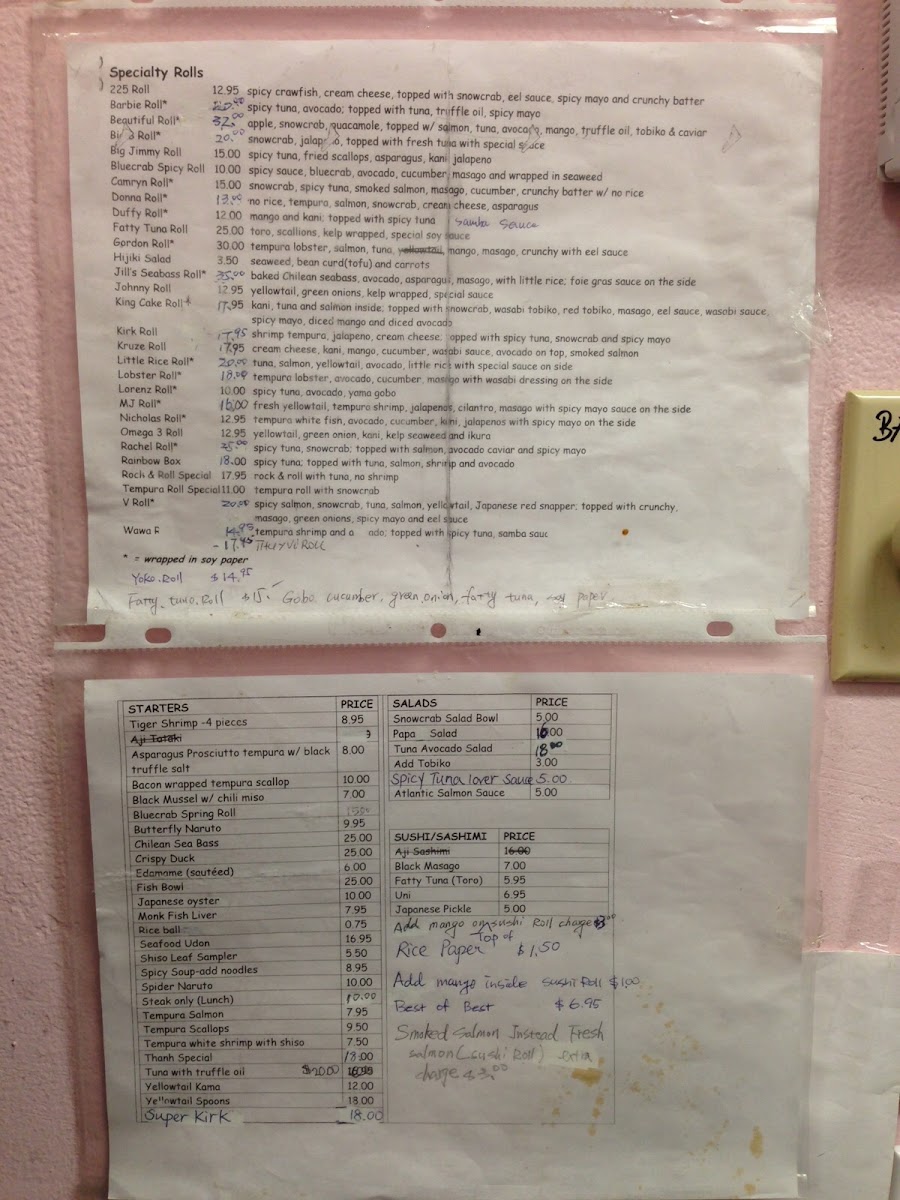 Specialty Rolls
225 Roll 12.95 spicy crawfish, cream cheese, topped with snowcrab, eel sauce, spicy mayo and crunchy batter
Barbie Roll* spicy tuna, avocado; topped with tuna, truffle oil, spicy mayo
Beautiful Roll* 32.00 apple, snowcrab, guacamole, topped w/ salmon, tuna, avocado, mango, truffle oil, tobiko & caviar
Roll* 20.00 snowcrab, topped with fresh tuna with special sauce
Big Jimmy Roll 15.00 spicy tuna, fried scallops, asparagus, kani, jalapeno
Bluecrab Spicy Roll 10.00 spicy sauce, bluecrab, avocado, cucumber, masago and wrapped in seaweed
Camryn Roll* 15.00 snowcrab, spicy tuna, smoked salmon, masago, cucumber, crunchy batter w/ no rice
Donna Roll* 13.00 no rice, tempura, salmon, snowcrab, cream cheese, asparagus
Duffy Roll* 12.00 mango and kani; topped with spicy tuna samba sauce
Fatty Tuna Roll 25.00 toro, scallions, kelp wrapped, special soy sauce
Gordon Roll* 30.00 tempura lobster, salmon, tuna, yellowtail, mango, masago, crunchy with eel sauce
Hijiki Salad 3.50 seaweed, bean curd(tofu) and carrots
Jill's Seabass Roll* 35.00 baked Chilean seabass, avocado, asparagus, masago, with little rice; foie gras sauce on the side
Johnny Roll 12.95 yellowtail, green onions, kelp wrapped, special sauce
King Cake Roll* 17.95 kani, tuna and salmon inside; topped with snowcrab, wasabi tobiko, red tobiko, masago, eel sauce, wasabi sauce,
spicy mayo, diced mango and diced avocado
Kirk Roll 17.95 shrimp tempura, jalapeno, cream cheese; topped with spicy tuna, snowcrab and spicy mayo
Kruze Roll 17.95 cream cheese, kani, mango, cucumber, wasabi sauce, avocado on top, smoked salmon
Little Rice Roll* 20.00 tuna, salmon, yellowtail, avocado, little rice with special sauce on side
Lobster Roll* 18.00 tempura lobster, avocado, cucumber, masago with wasabi dressing on the side
Lorenz Roll* 10.00 spicy tuna, avocado, yama gobo
MJ Roll* 16.00 fresh yellowtail, tempura shrimp, jalapenos, cilantro, masago with spicy mayo sauce on the side
Nicholas Roll* 12.95 tempura white fish, avocado, cucumber, kani, jalapenos with spicy mayo on the side
Omega 3 Roll 12.95 yellowtail, green onion, kani, kelp seaweed and ikura
Rachel Roll* spicy tuna, snowcrab; topped with salmon, avocado caviar and spicy mayo
Rainbow Box 18.00 spicy tuna; topped with tuna, salmon, shrimp and avocado
Rock & Roll Special 17.95 rock & roll with tuna, no shrimp
Tempura Roll Special 11.00 tempura roll with snowcrab
V Roll* 20.00 spicy salmon, snowcrab, tuna, salmon, yellowtail, Japanese red snapper; topped with crunchy,
masago, green onions, spicy mayo and eel sauce
Wawa 14.95 tempura shrimp and topped with spicy tuna, samba
- 17.95 Thuyvi Roll
* = wrapped in soy paper
Yoko.Roll $14.95
Fatty.tuna.Roll $15. Gobo. cucumber, green onion, fatty tuna, soy paper
STARTERS PRICE
Tiger Shrimp -4 pieces 8.95
Aji Tataki
Asparagus Prosciutto tempura w/ black 8.00
truffle salt
Bacon wrapped tempura scallop 10.00
Black Mussel w/ chili miso 7.00
Bluecrab Spring Roll
Butterfly Naruto 9.95
Chilean Sea Bass 25.00
Crispy Duck 25.00
Edamame (sautéed) 6.00
Fish Bowl 25.00
Japanese oyster 10.00
Monk Fish Liver 7.95
Rice ball 0.75
Seafood Udan 16.95
Shiso Leaf Sampler 5.50
Spicy Soup-add noodles 8.95
Spider Naruto 10.00
Steak only (Lunch) 10.00
Tempura Salmon 7.95
Tempura Scallops 9.50
Tempura white shrimp with shiso 7.50
Thanh Special 18.00
Tuna with truffle oil $20.00
Yellowtail Kama 12.00
Yellowtail Spoons 18.00
Super Kirk 18.00
SALADS PRICE
Snowcrab Salad Bowl 5.00
Papa Salad 16.00
Tuna Avocado Salad 18.00
Add Tobiko 3.00
Spicy Tuna lover Sauce 5.00
Atlantic Salmon Sauce 5.00
SUSHI/SASHIMI PRICE
Aji Sashimi 16.00
Black Masago 7.00
Fatty Tuna (Toro) 5.95
Uni 6.95
Japanese Pickle 5.00
Add mango on top of sushi Roll charge
Rice Paper $1.50
Add mango inside sushi Roll $1.00
Best of Best $6.95
Smoked salmon Instead Fresh
salmon (sushi Roll) extra
charge $3.00